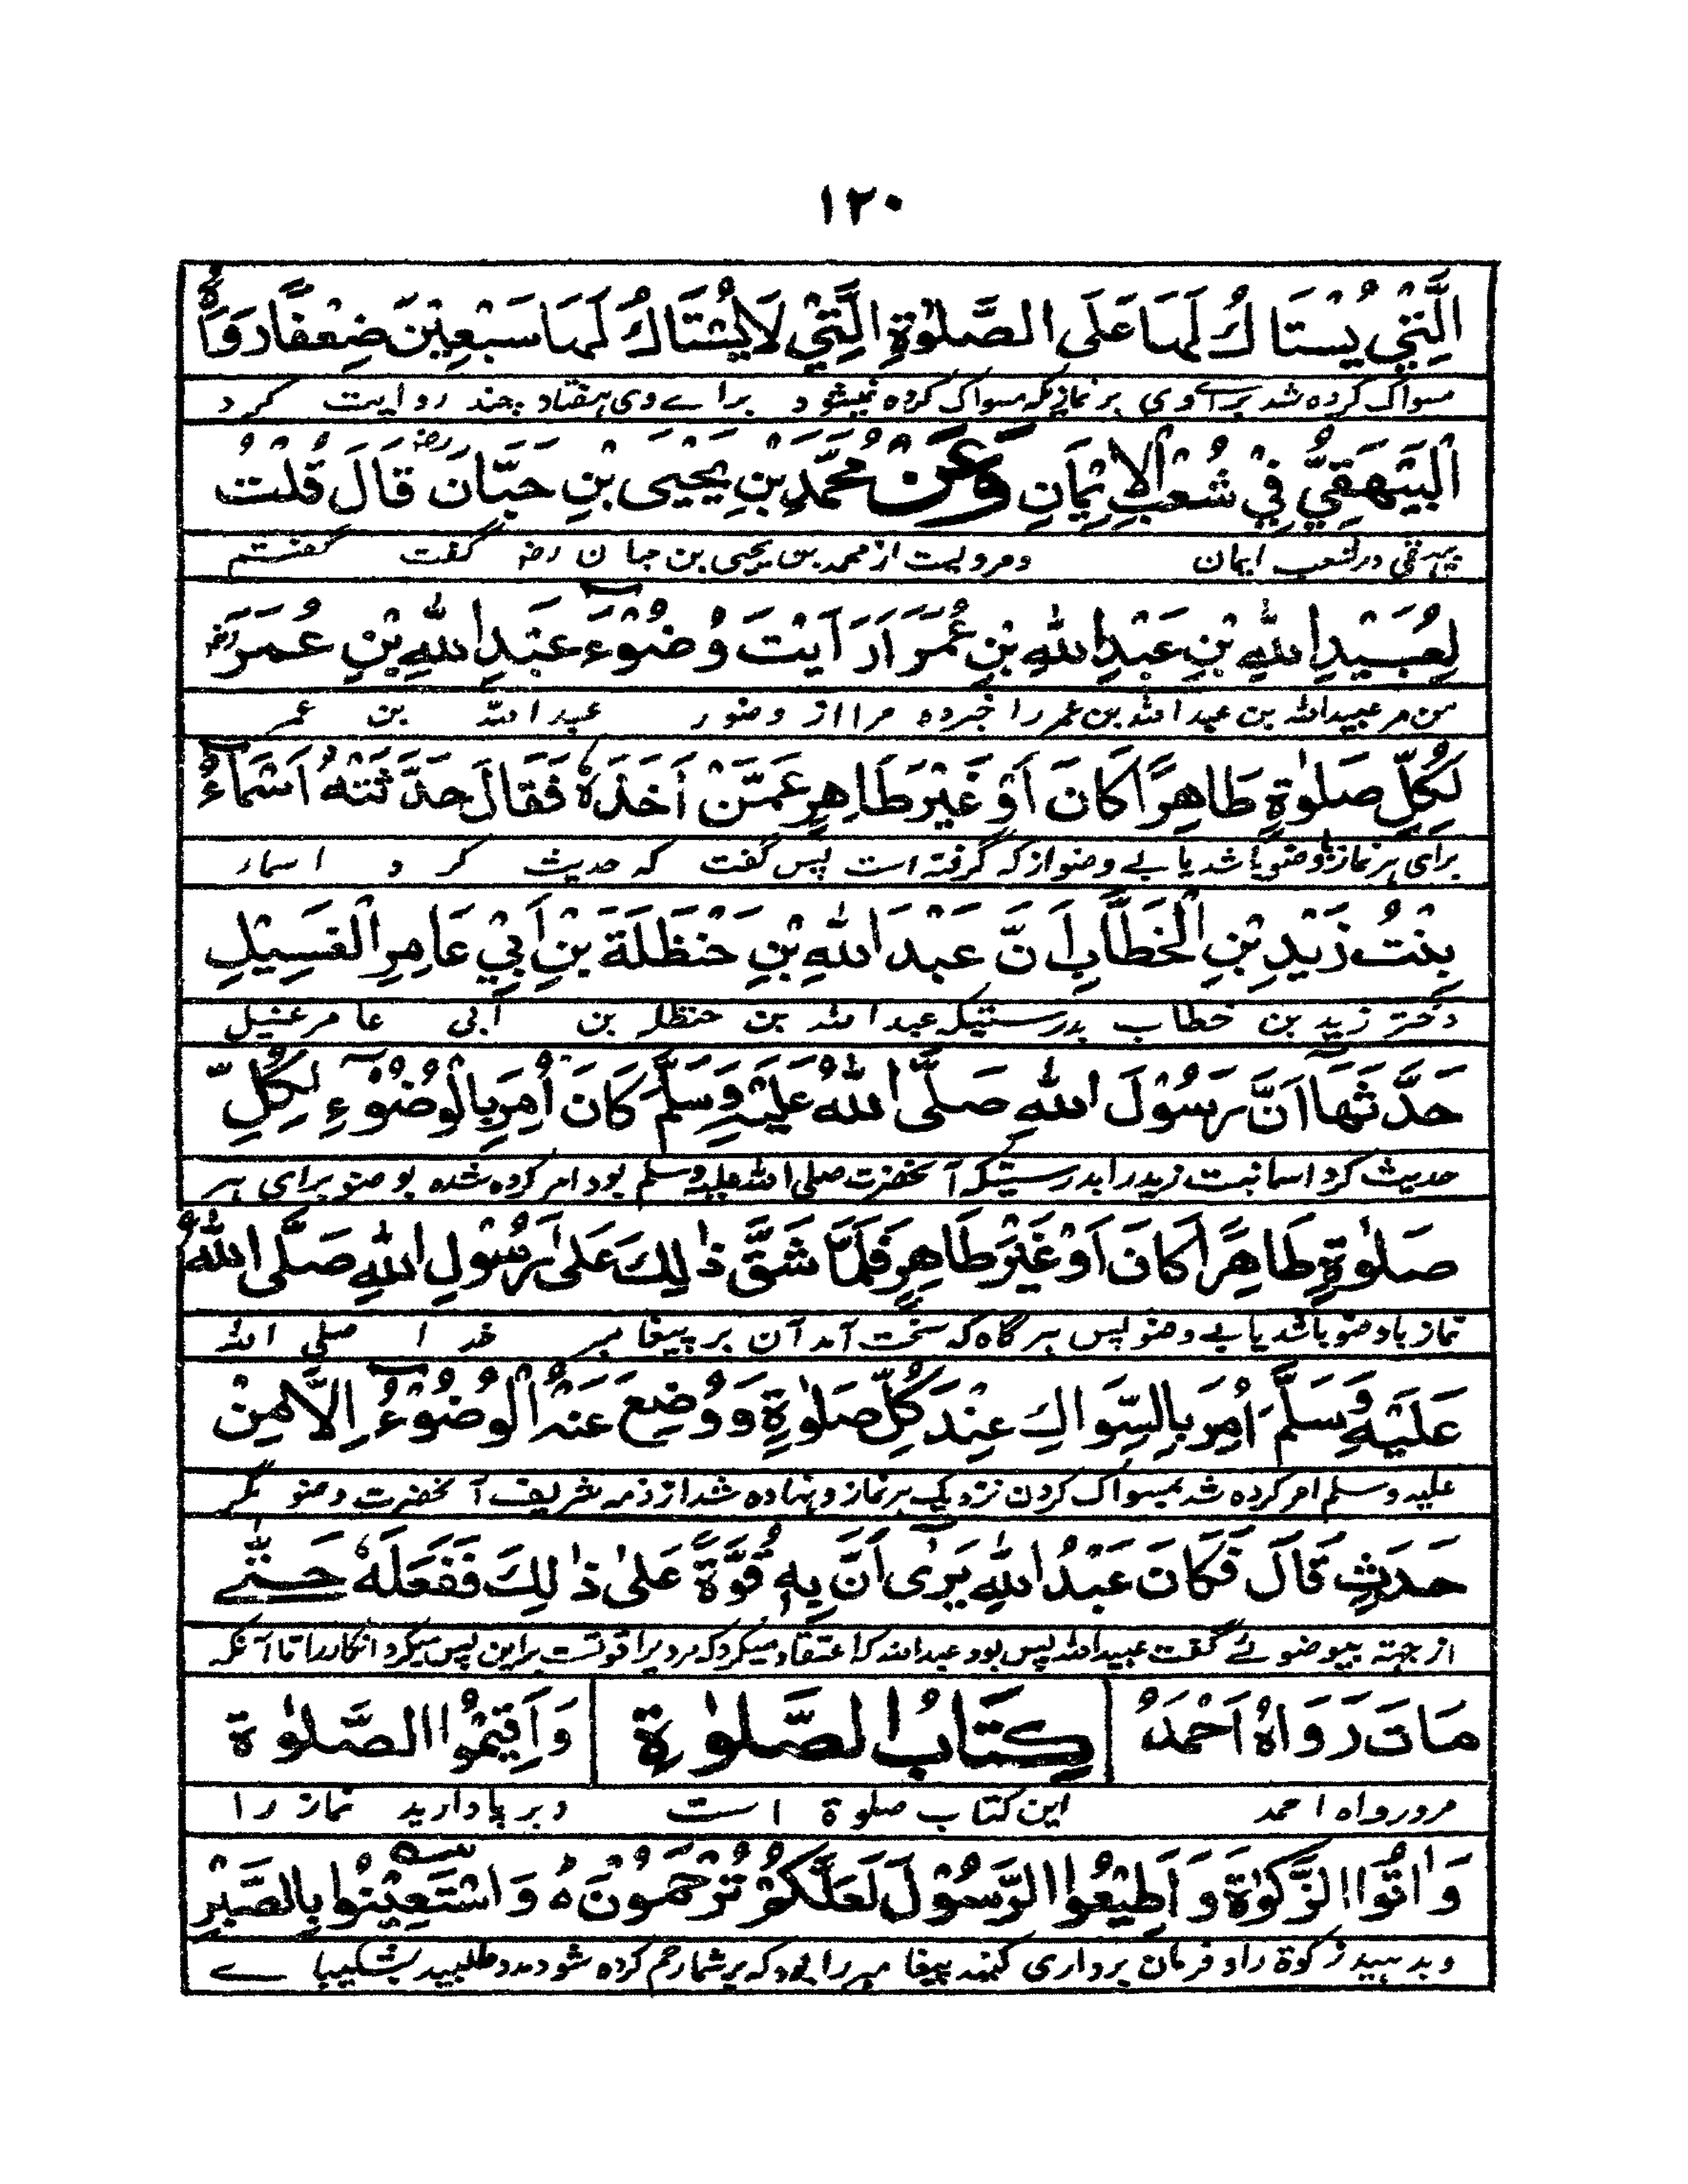 ١٢٠
الَّتِيْ يُسْتَاكُ لَهَا عَلَى الصَّلٰوةِ الَّتِيْ لَا يُسْتَاكُ لَهَا سَبْعِيْنَ ضِعْفًا رَوَاهُ
مسواک کرده شد برای وی بر نمازیکه مسواک کرده نمیشود براے وی هفتاد چند روایت کرد
الْبَيْهَقِيُّ فِيْ شُعَبِ الْاِيْمَانِ وَعَنْ مُحَمَّدِ بْنِ يَحْيٰى بْنِ حَبَّانَ رض قَالَ قُلْتُ
بیهقی در شعب ایمان ومرویست از محمد بن یحیی بن حبان رض گفت گفتم
لِعُبَيْدِ اللّٰهِ بْنِ عَبْدِ اللّٰهِ بْنِ عُمَرَ اَرَاَيْتَ وُضُوْءَ عَبْدِ اللّٰهِ بْنِ عُمَرَ رض
من مر عبیدالله بن عبدالله بن عمر را خبر ده مرا از وضور عبدالله بن عمر
لِكُلِّ صَلٰوةٍ طَاهِرًا كَانَ اَوْ غَيْرَ طَاهِرٍ عَمَّنْ اَخَذَهٗ فَقَالَ حَدَّثَتْهُ اَسْمَآءُ
برای هر نماز باوضو باشد یا بے وضو از که گرفته است پس گفت که حدیث کرد اسمار
بِنْتُ زَيْدِ بْنِ الْخَطَّابِ اَنَّ عَبْدَ اللّٰهِ بْنِ حَنْظَلَةَ بْنِ اَبِيْ عَامِرِ الْغَسِيْلِ
دختر زید بن خطاب بدرستیکه عبدالله بن حنظله بن ابی عامر غسیل
حَدَّثَهَا اَنَّ رَسُوْلَ اللّٰهِ صَلَّى اللّٰهُ عَلَيْهِ وَسَلَّمَ كَانَ اُمِرَ بِالْوُضُوْٓءِ لِكُلِّ
حدیث کرد اسما بنت زید را بدرستیکه آنحضرت صلی الله علیه وسلم بود امر کرده شده بوضو برای هر
صَلٰوةٍ طَاهِرًا كَانَ اَوْ غَيْرَ طَاهِرٍ فَلَمَّا شَقَّ ذٰلِكَ عَلٰى رَسُوْلِ اللّٰهِ صَلَّى اللّٰهُ
نماز باوضو باشد یا بے وضو پس هر گاه که سخت آمد آن بر پیغامبر خدا صلی الله
عَلَيْهِ وَسَلَّمَ اُمِرَ بِالسِّوَاكِ عِنْدَ كُلِّ صَلٰوةٍ وَ وُضِعَ عَنْهُ الْوُضُوْٓءُ اِلَّا مِنْ
علیه وسلم امر کرده شد بمسواک کردن نزدیک هر نماز ونهاده شد از ذمه شریف آنحضرت وضو مگر
حَدَثٍ قَالَ فَكَانَ عَبْدُ اللّٰهِ يَرٰى اَنَّ بِهٖ قُوَّةً عَلٰى ذٰلِكَ فَفَعَلَهٗ حَتّٰے
از جهته بیوضوئے گفت عبیدالله پس بود عبدالله که اعتقاد میکرد که مرد برا قوتست براین پس میکرد انکار را تا آنکه
مَاتَ رَوَاهُ اَحْمَدُ كِتَابُ الصَّلٰوةِ وَاَقِيْمُوا الصَّلٰوةَ
مرد رواه احمد این کتاب صلوة است وبرپا دارید نماز را
وَاٰتُوا الزَّكٰوةَ وَ اَطِيْعُوا الرَّسُوْلَ لَعَلَّكُمْ تُرْحَمُوْنَ وَاسْتَعِيْنُوا بِالصَّبْرِ
وبدهید زکوة را وفرمان برداری کنید پیغامبر را بود که بر شما رحم کرده شود ومدد طلبید بشکیبائے